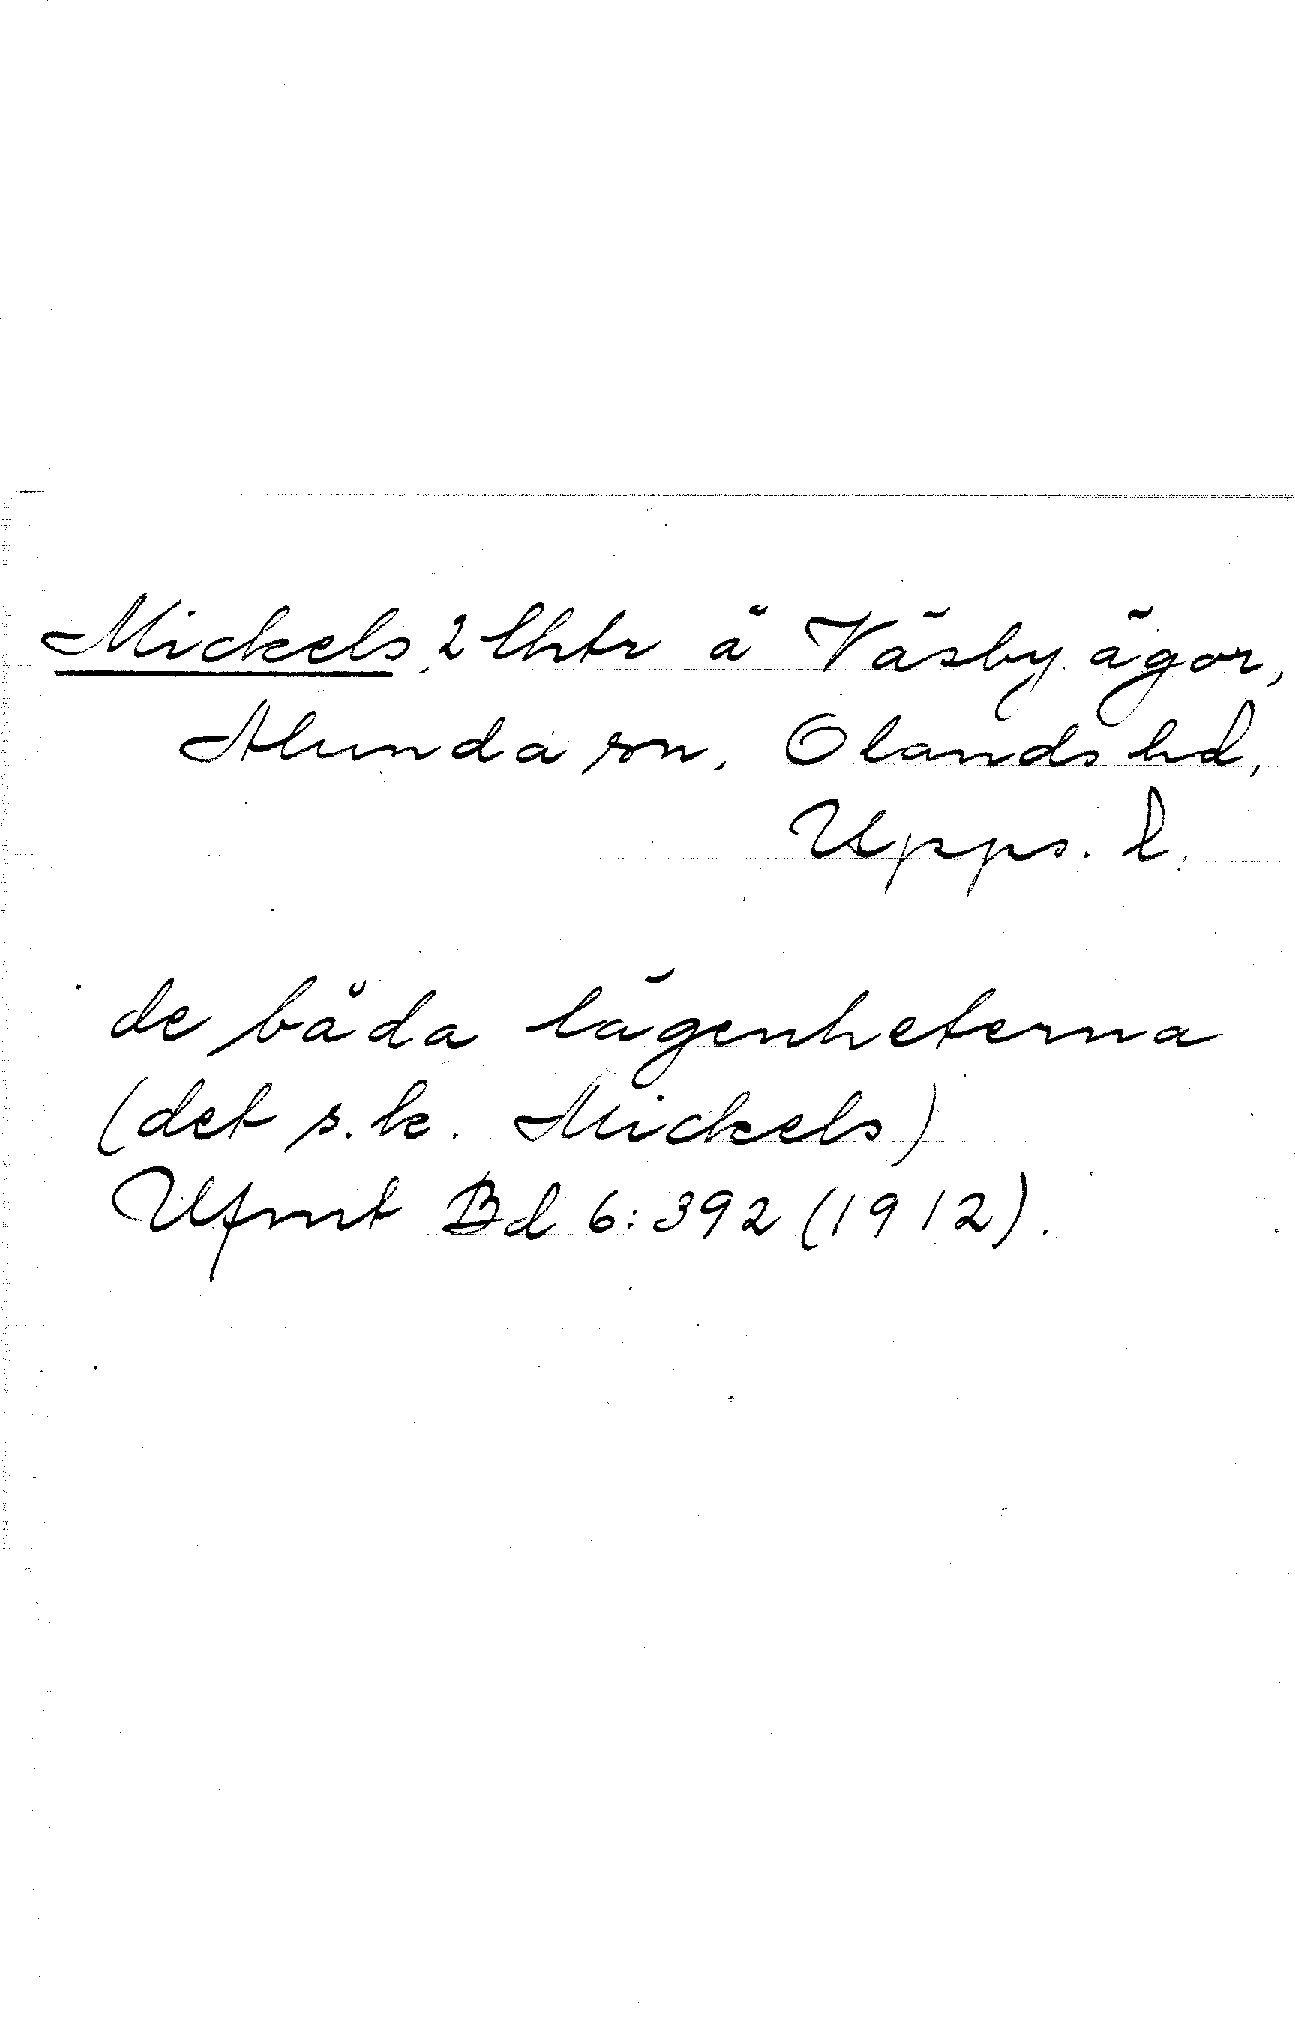 Mickels, 2 lhtr å Väsby ägor,
Alunda sn, Olands hd,
Upps. l.
de båda lägenheterna
(det s.k. Mickels)
Ufmt Bd 6:392 (1912).